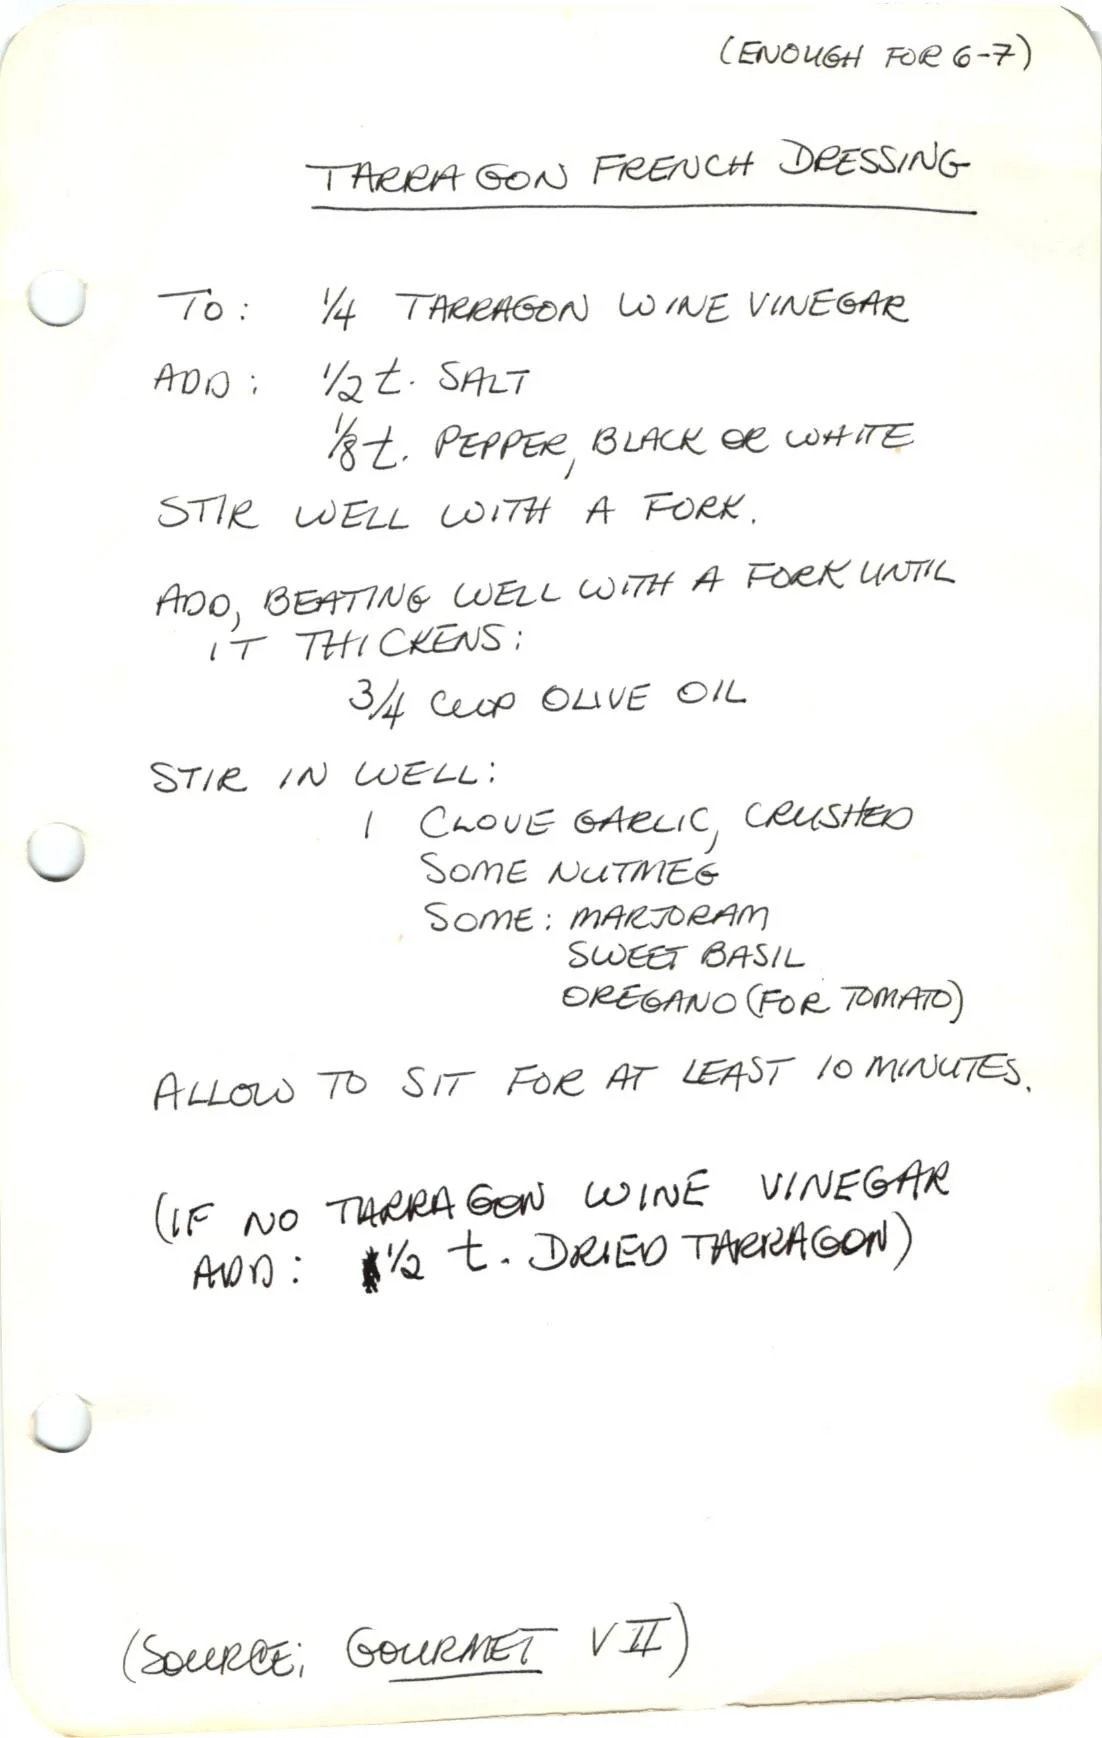 (ENOUGH FOR 6-7)
TARRAGON FRENCH DRESSING
TO: 1/4 TARRAGON WINE VINEGAR
ADD: 1/2 t. SALT
1/8 t. PEPPER, BLACK OR WHITE
STIR WELL WITH A FORK.
ADD, BEATING WELL WITH A FORK UNTIL
IT THICKENS:
3/4 CUP OLIVE OIL
STIR IN WELL:
1 CLOVE GARLIC, CRUSHED
SOME NUTMEG
SOME: MARJORAM
SWEET BASIL
OREGANO (FOR TOMATO)
ALLOW TO SIT FOR AT LEAST 10 MINUTES.
(IF NO TARRAGON WINE VINEGAR
ADD: 1/2 t. DRIED TARRAGON)
(SOURCE; GOURMET VII)